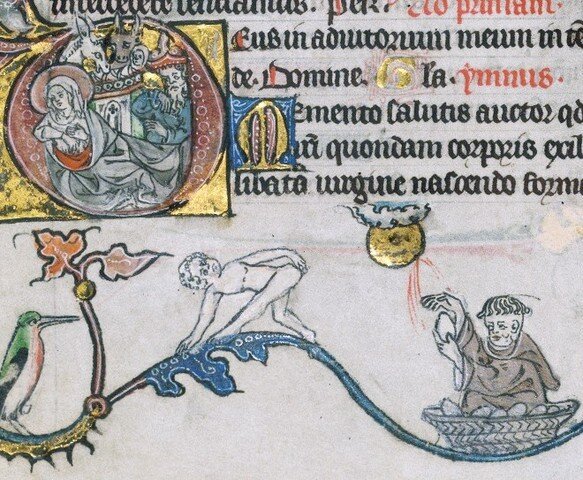 sentiamus. Per. Ad primam.
Deus in adiutorium meum inte
de. Domine. Gla. ymnus.
Memento salutis auctor qd
nr̄i quondam corporis ex il
libata uirgine nascendo form